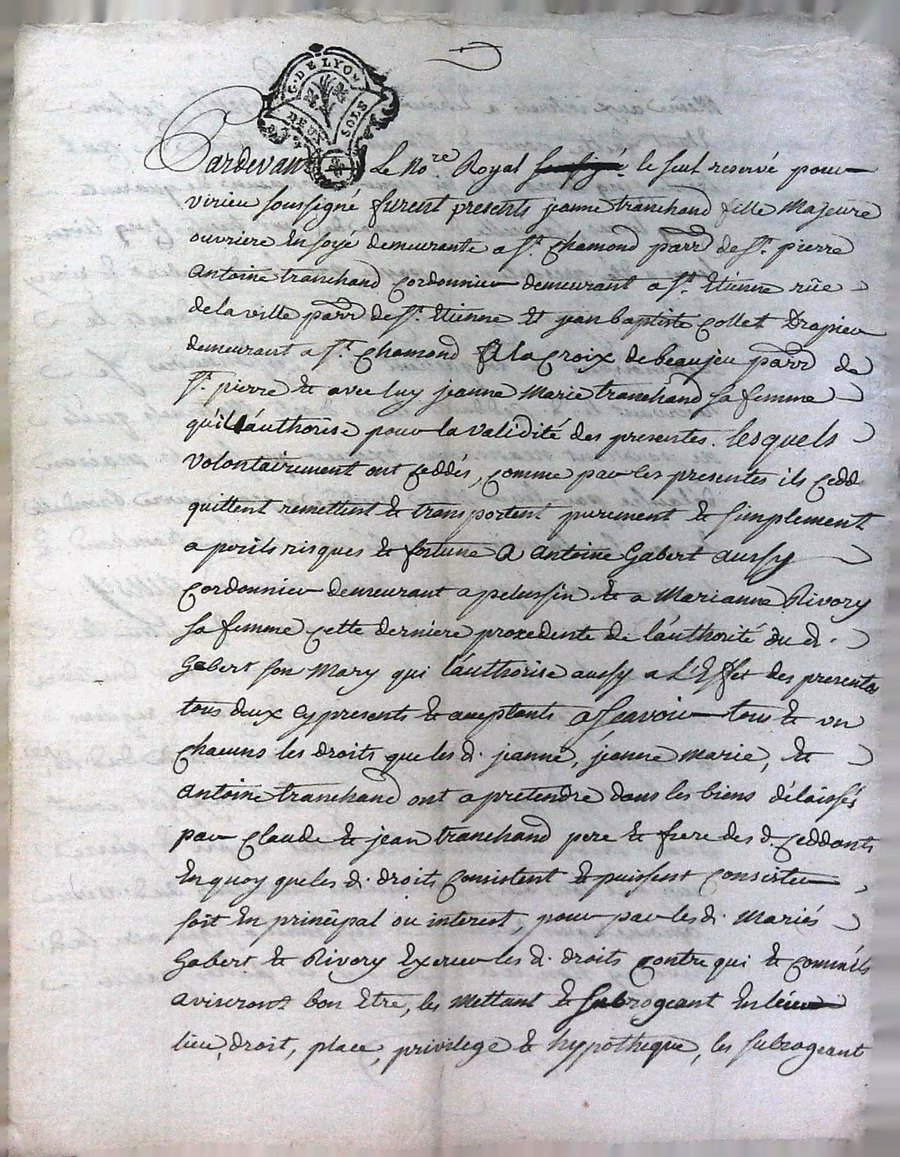 G. DE LYON
DEUX SOLS
Pardevant Le No.re Royal soussigé le seul reservé pour
virieu soussigné furent presents jeanne tranchand fille Majeure
ouvriere En soyé demeurante a st. chamond parr. de st. pierre
Antoine tranchand Cordonnier demeurant a st. Etienne rüe
de la ville parr. de st. Etienne et jean baptiste Collet Drapier
demeurant a st. chamond a la croix de beaujeu parr. de
st. pierre et avec luy jeanne Marie tranchand sa femme
qu'il authorise pour la validité des presentes. lesquels
volontairement ont ceddés, comme par les presentes ils cedd
quittent remettent et transportent purement et simplement
a perils risques et fortune a antoine Gabert aussy
cordonnier demeurant a pelussin et a Marianne Rivory
sa femme cette derniere procedente de l'authorité du d.
Gabert son Mary qui l'authorise aussy a L'Effet des presentes
tous deux cy presents et aceptants a scavoir tous et un
chacuns les droits que les d. jeanne, jeanne Marie, et
antoine tranchand ont a pretendre dans les biens délaissés
par Claude et jean tranchand pere et frere des d. ceddants
En quoy que les d. droits consistent et puissent consister
soit En principal ou interest, pour par les d. Mariés
Gabert et Rivory Exercer les d. droits contre qui et comm'ils
aviseront bon Etre, les mettant et subrogeant En leur
lieu, droit, place, privilege et hypotheque, les subrogeant